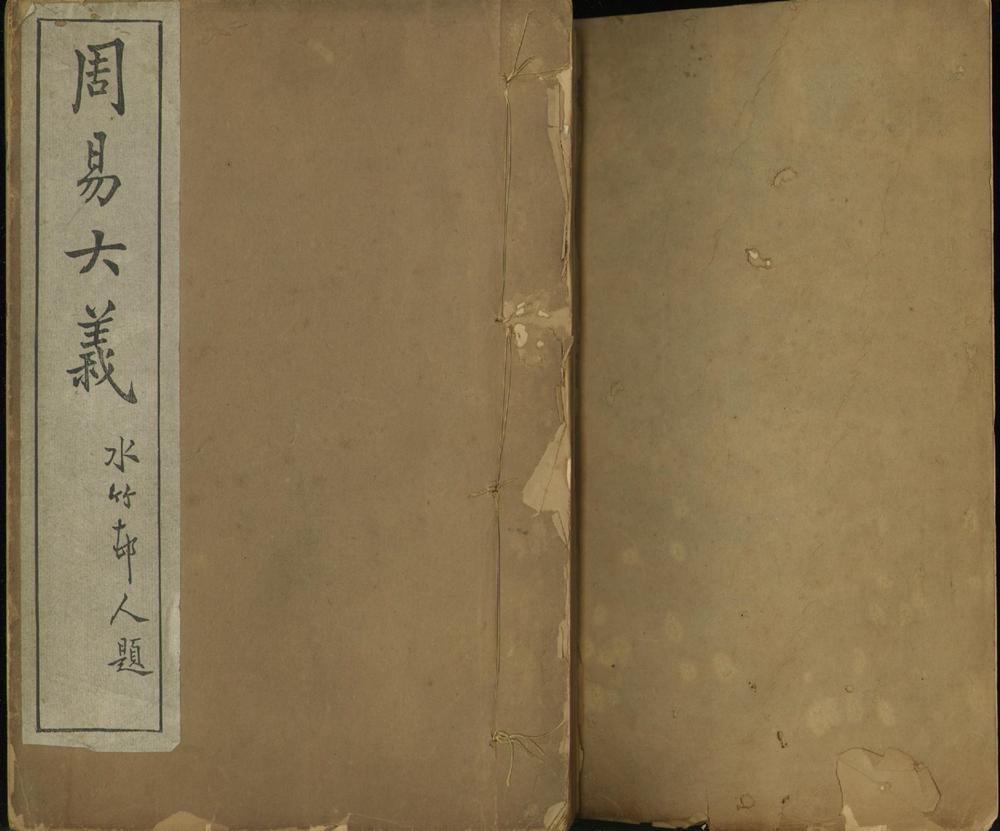 周易大義
水竹邨人題